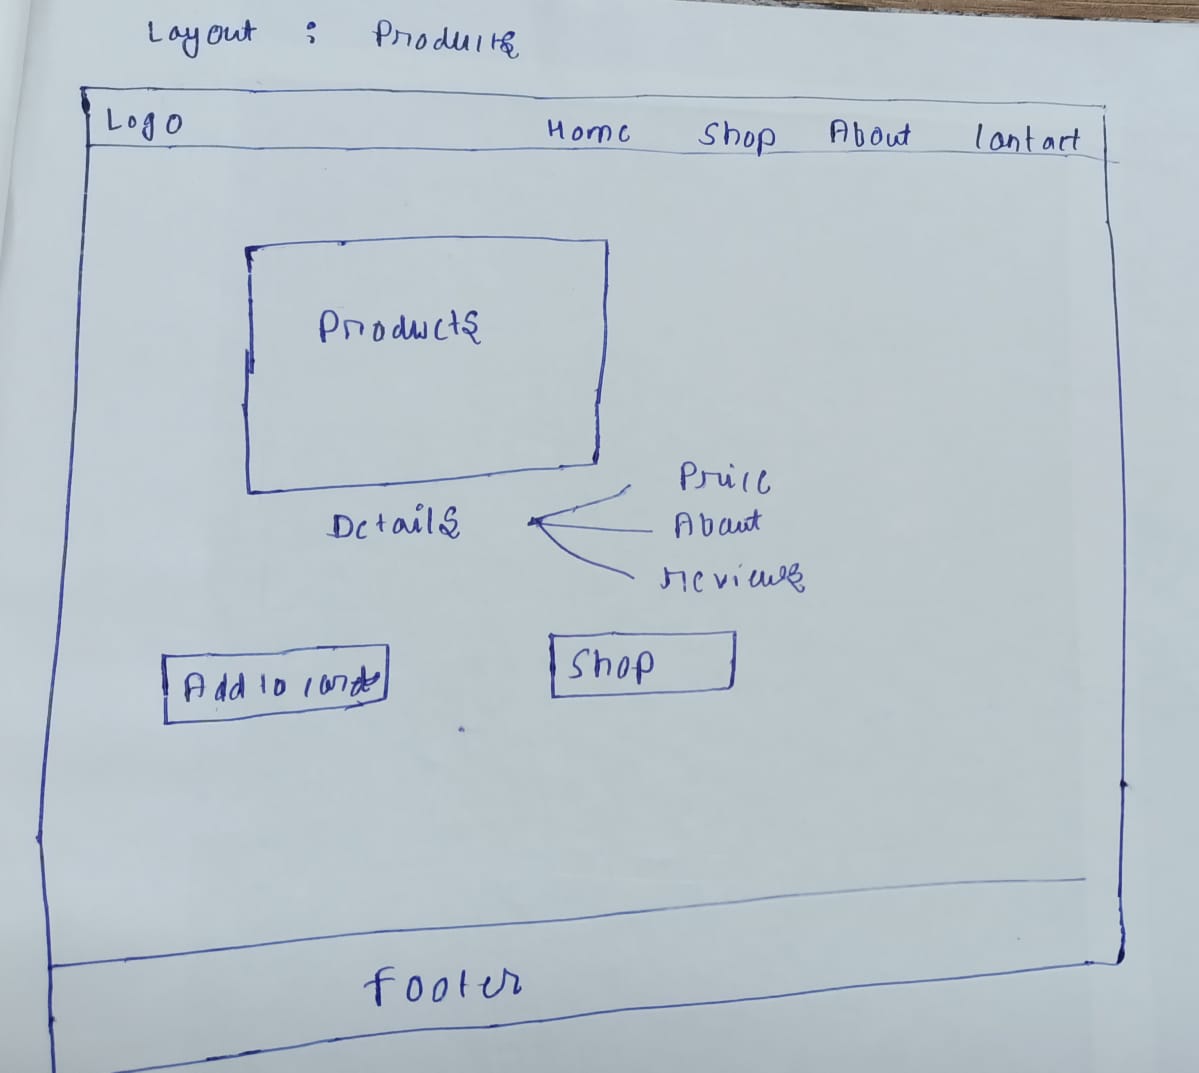 Layout : Products
Logo Home Shop About Contact
Products
Price
Details About
reviews
Add to card Shop
Footer